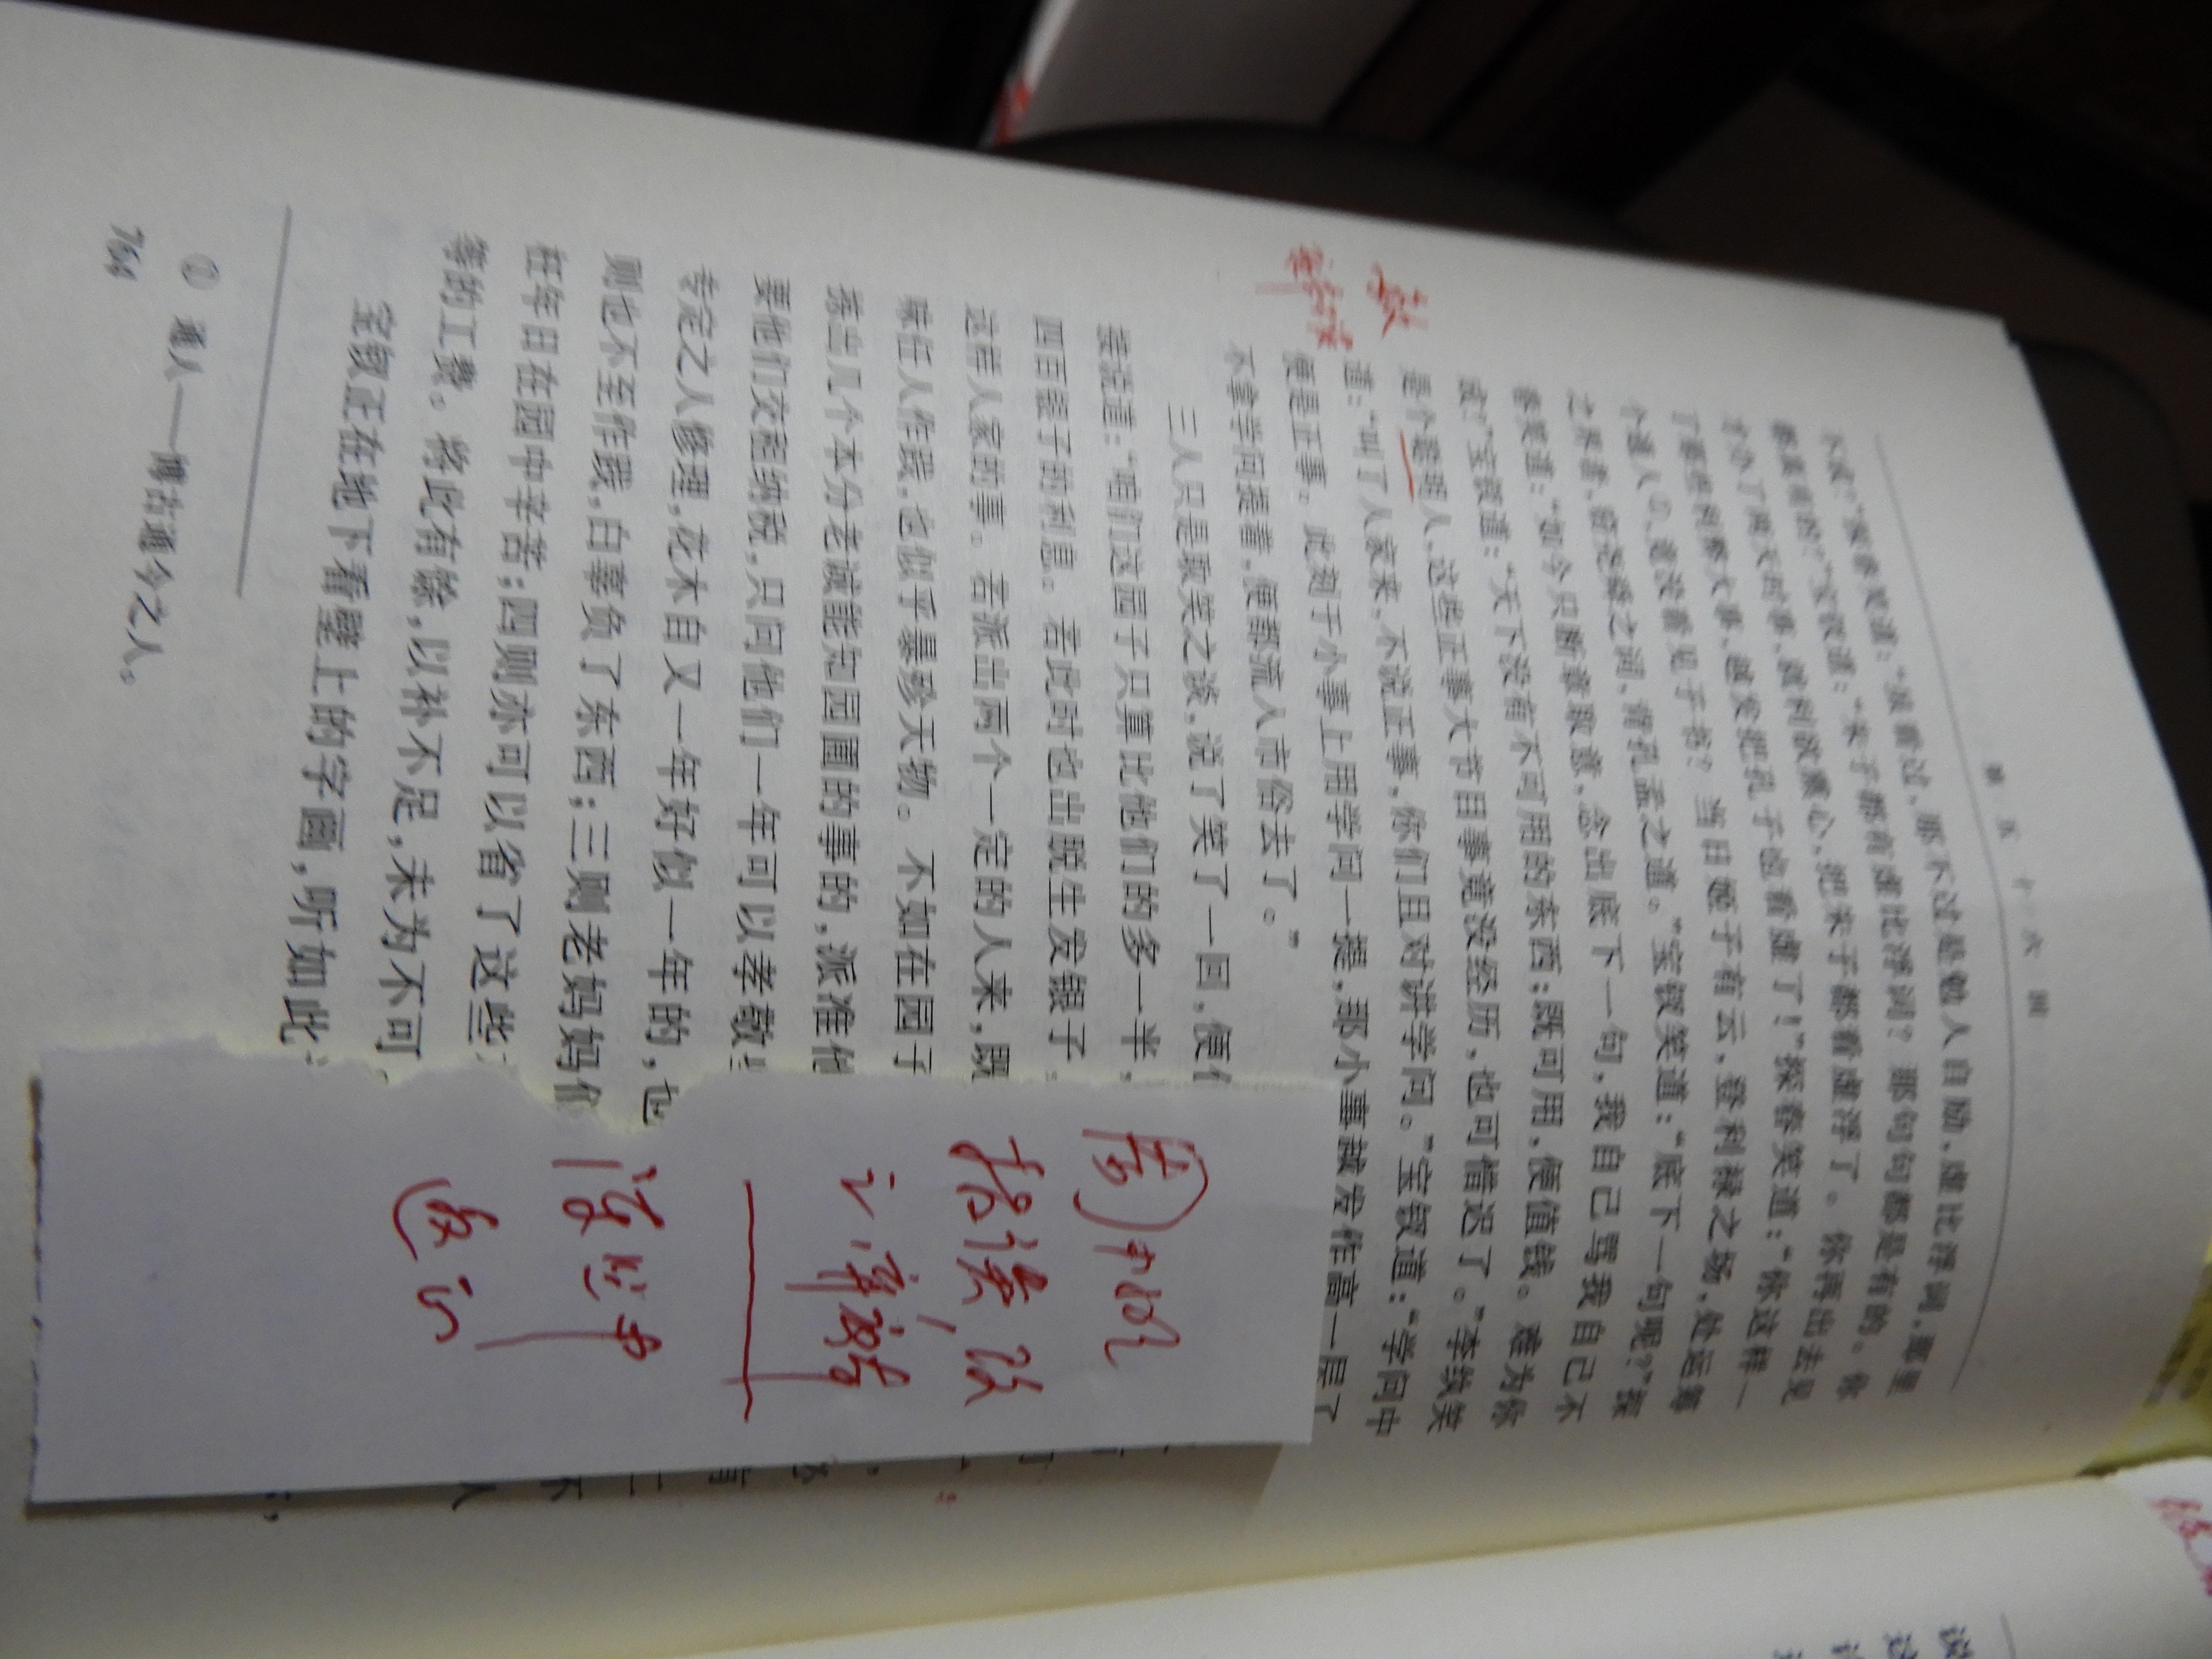 第五十六回
不成？”探春笑道：“虽看过，那不过是勉人自励，虚比浮词，那里
都真有的？”宝钗道：“朱子都有虚比浮词？那句句都是有的。你
才办了两天时事，就利欲熏心，把朱子都看虚浮了。你再出去见
了那些利弊大事，越发把孔子也看虚了！”探春笑道：“你这样一
个通人①，竟没看见子书？当日姬子有云，登利禄之场，处运筹
之界者，窃尧舜之词，背孔孟之道。”宝钗笑道：“底下一句呢？”探
春笑道：“如今只断章取意，念出底下一句，我自己骂我自己不
成？”宝钗道：“天下没有不可用的东西；既可用，便值钱。难为你
是个聪明人，这些正事大节目事竟没经历，也可惜迟了。”李纨笑
道：“叫了人家来，不说正事，你们且对讲学问。”宝钗道：“学问中
便是正事。此刻于小事上用学问一提，那小事越发作高一层了
不拿学问提着，便都流入市俗去了。”
三人只是取笑之谈，说了笑了一回，便
接说道：“咱们这园子只算比他们的多一半，
四百银子的利息。若此时也出脱生发银子
这样人家的事。若派出两个一定的人来，既
味任人作践，也似乎暴殄天物。不如在园子
拣出几个本分老诚能知园圃的事的，派准他
要他们交租纳税，只问他们一年可以孝敬
专定之人修理，花木自又一年好似一年的，也
则也不至作践，白辜负了东西；三则老妈妈们
在年日在园中辛苦；四则亦可以省了这些
等的工费。将此有馀，以补不足，未为不可
宝钗正在地下看壁上的字画，听如此
① 通人——博古通今之人。
764